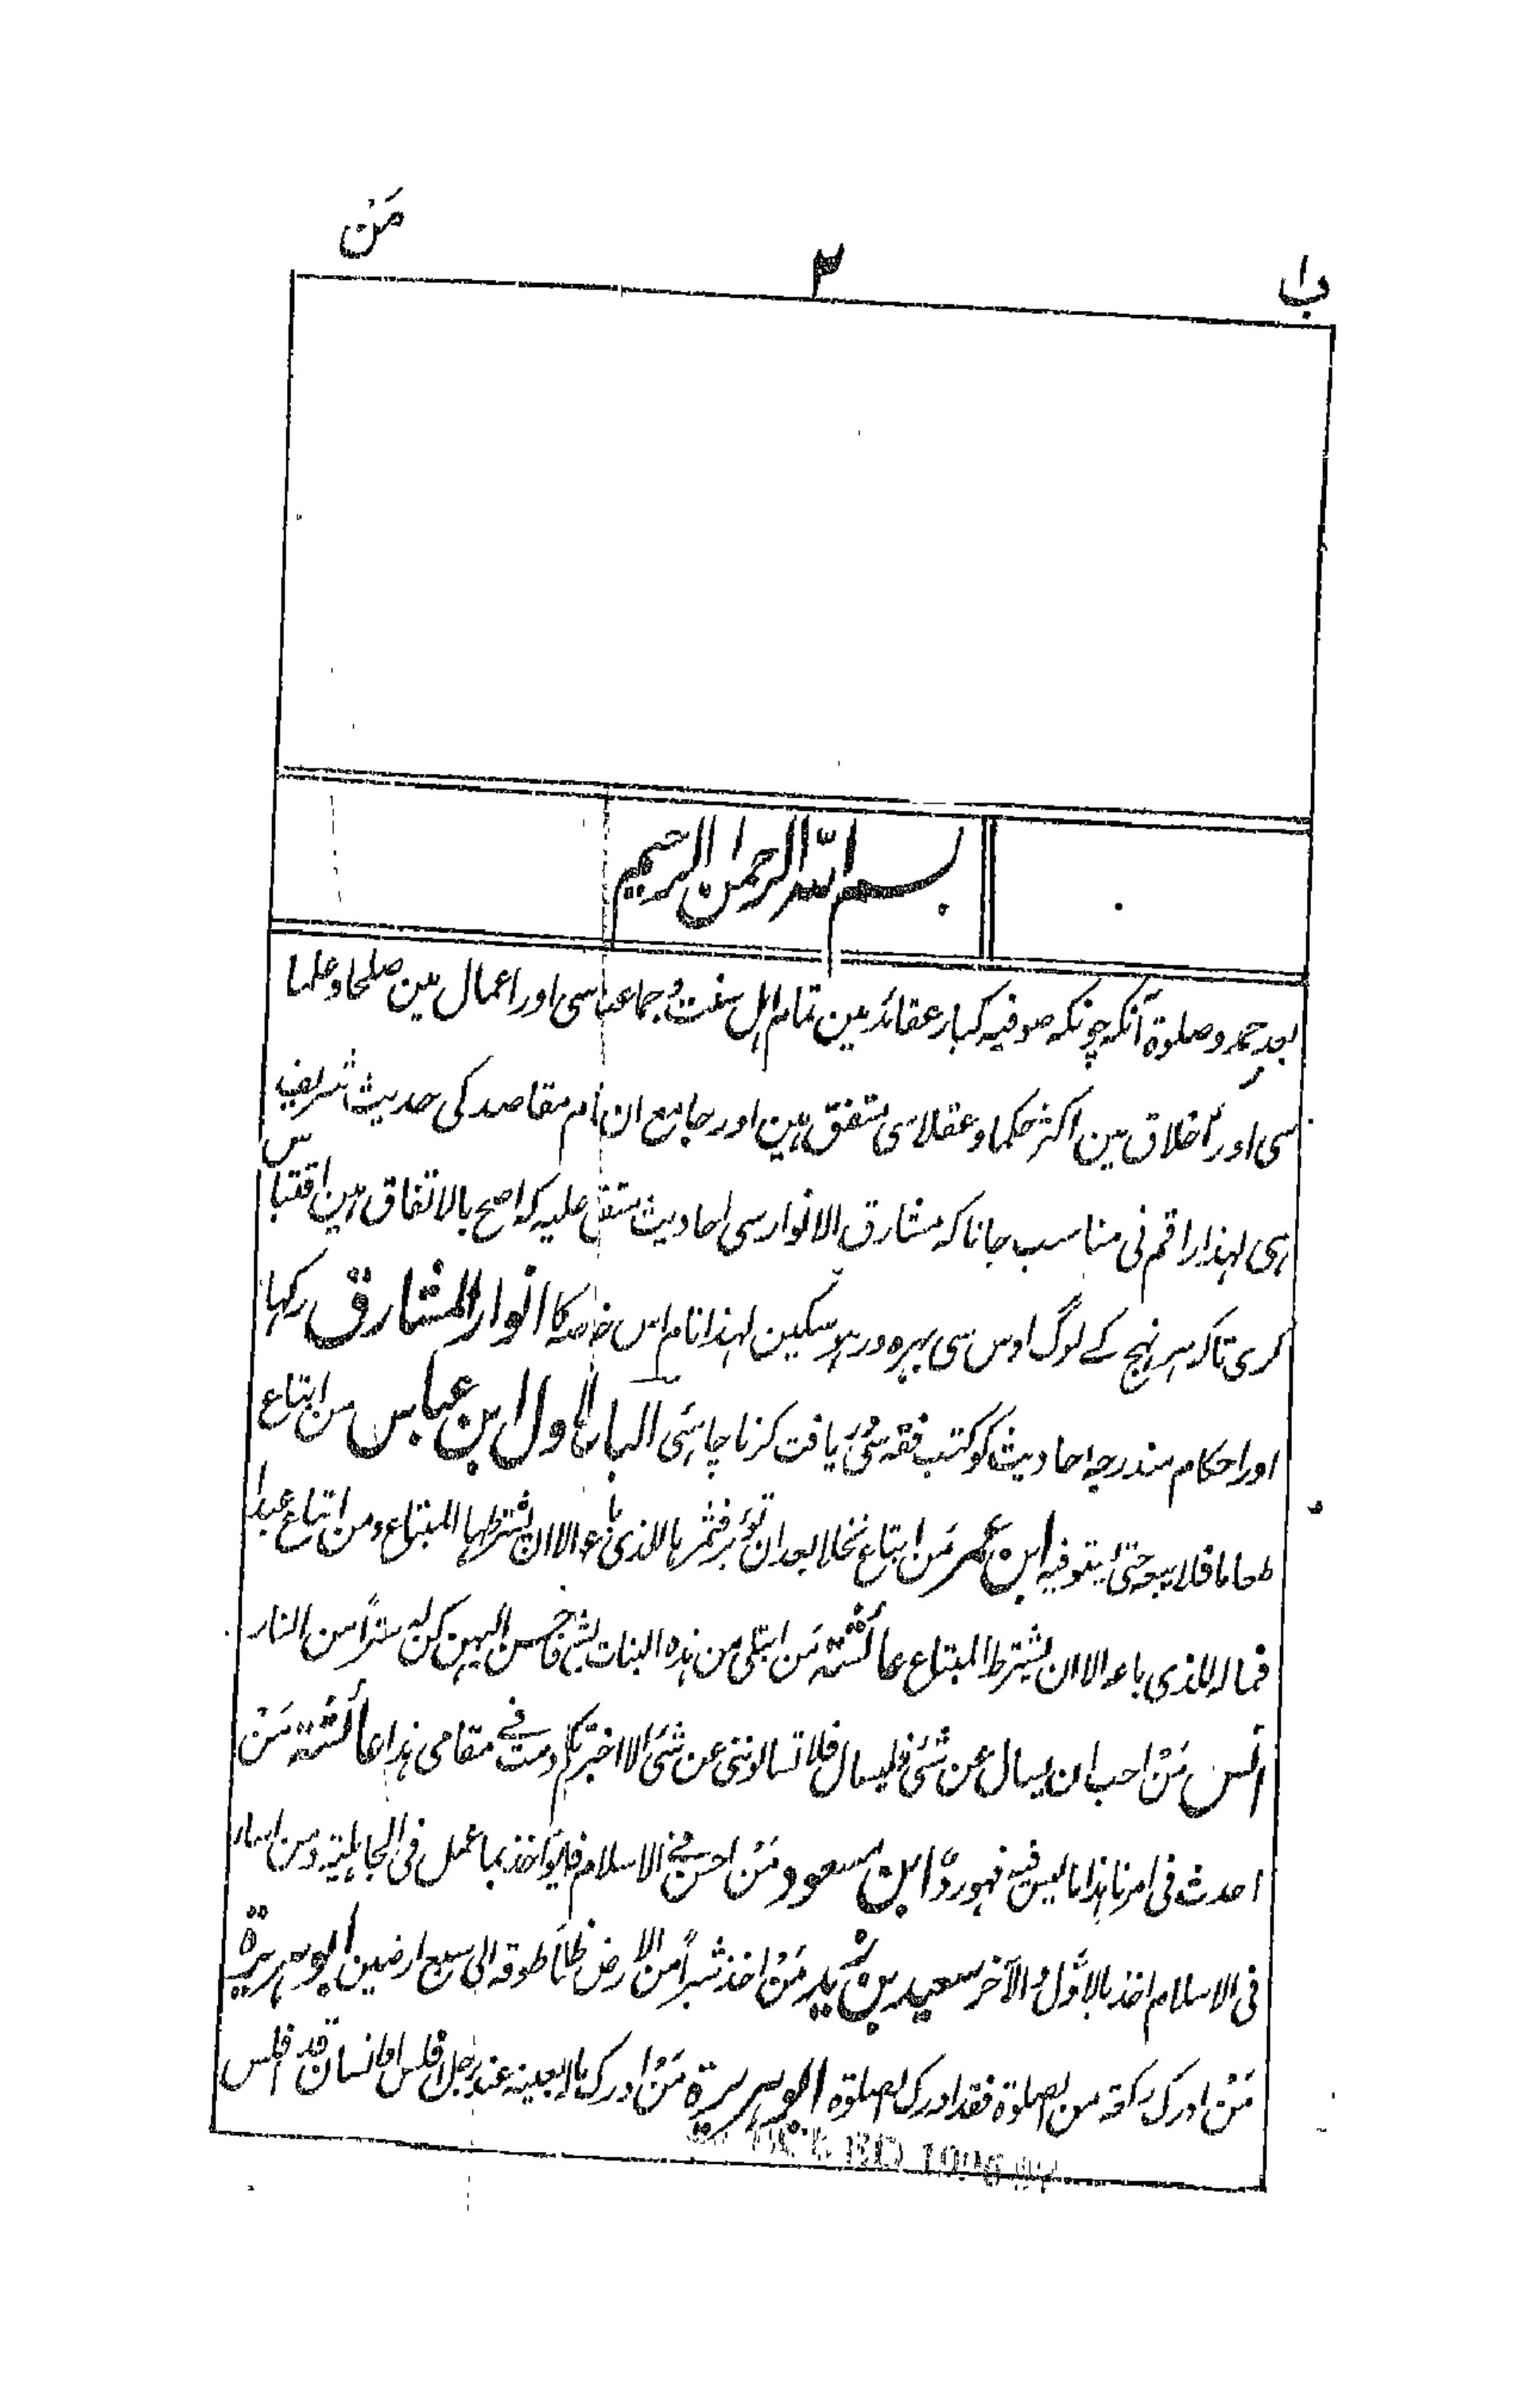 باب ۲ مَن
بسم اللہ الرحمن الرحیم
بعد حمد و صلوۃ آنکہ چونکہ صوفیہ کبار عقائد مین تمام اہل سنت و جماعۃ سی اور اعمال مین صلحا و علما
سی اور اخلاق مین اکثر حکما و عقلا سی متفق ہین اور جامع ان تمام مقاصد کی حدیث شریف
ہی لہذا راقم نی مناسب جانا کہ مشارق الانوار سی احادیث متفق علیہ کہ اصح بالاتفاق ہین اقتباس
کری تاکہ ہر نہج کے لوگ اوس سی بہرہ ور ہو سکین لہذا نام اس خلاصہ کا انوار المشارق رکہا
اور احکام مندرجہ احادیث کو کتب فقہ سی دریافت کرنا چاہئی الباب الاول ابن عباس من ابتاع
طعاما فلا یبعہ حتی یستوفیہ ابن عمر مَن ابتاع نخلا بعد ان تؤبر فثمرہا للذی باعہ الا ان یشترطہا المبتاع ومن ابتاع عبدا
فمالہ للذی باعہ الا ان یشترط المبتاع عائشۃ مَن ابتلی من ہذہ البنات بشئ فاحسن الیہن کن لہ ستراً من النار
انس مَنْ احب ان یسال عن شئ فلیسال فلا تسالوننی عن شئ الا اخبرتکم ما دمت فی مقامی ہذا عائشۃ مَنْ
احدث فی امرنا ہذا ما لیس فیہ فہو ردّ ابن مسعود مَنْ احسن فی الاسلام فلا یؤاخذ بما عمل فی الجاہلیۃ ومن اساء
فی الاسلام اخذ بالاوّل والآخر سعید بن زید مَنْ اخذ شبراً من الارض ظلماً طوقہ الی سبع ارضین ابو ہریرۃ
مَنْ ادرک رکعۃ من الصلوۃ فقد ادرک الصلوۃ ابو ہریرۃ مَنْ ادرک مالہ بعینہ عند رجل افلس او انسان قد افلس